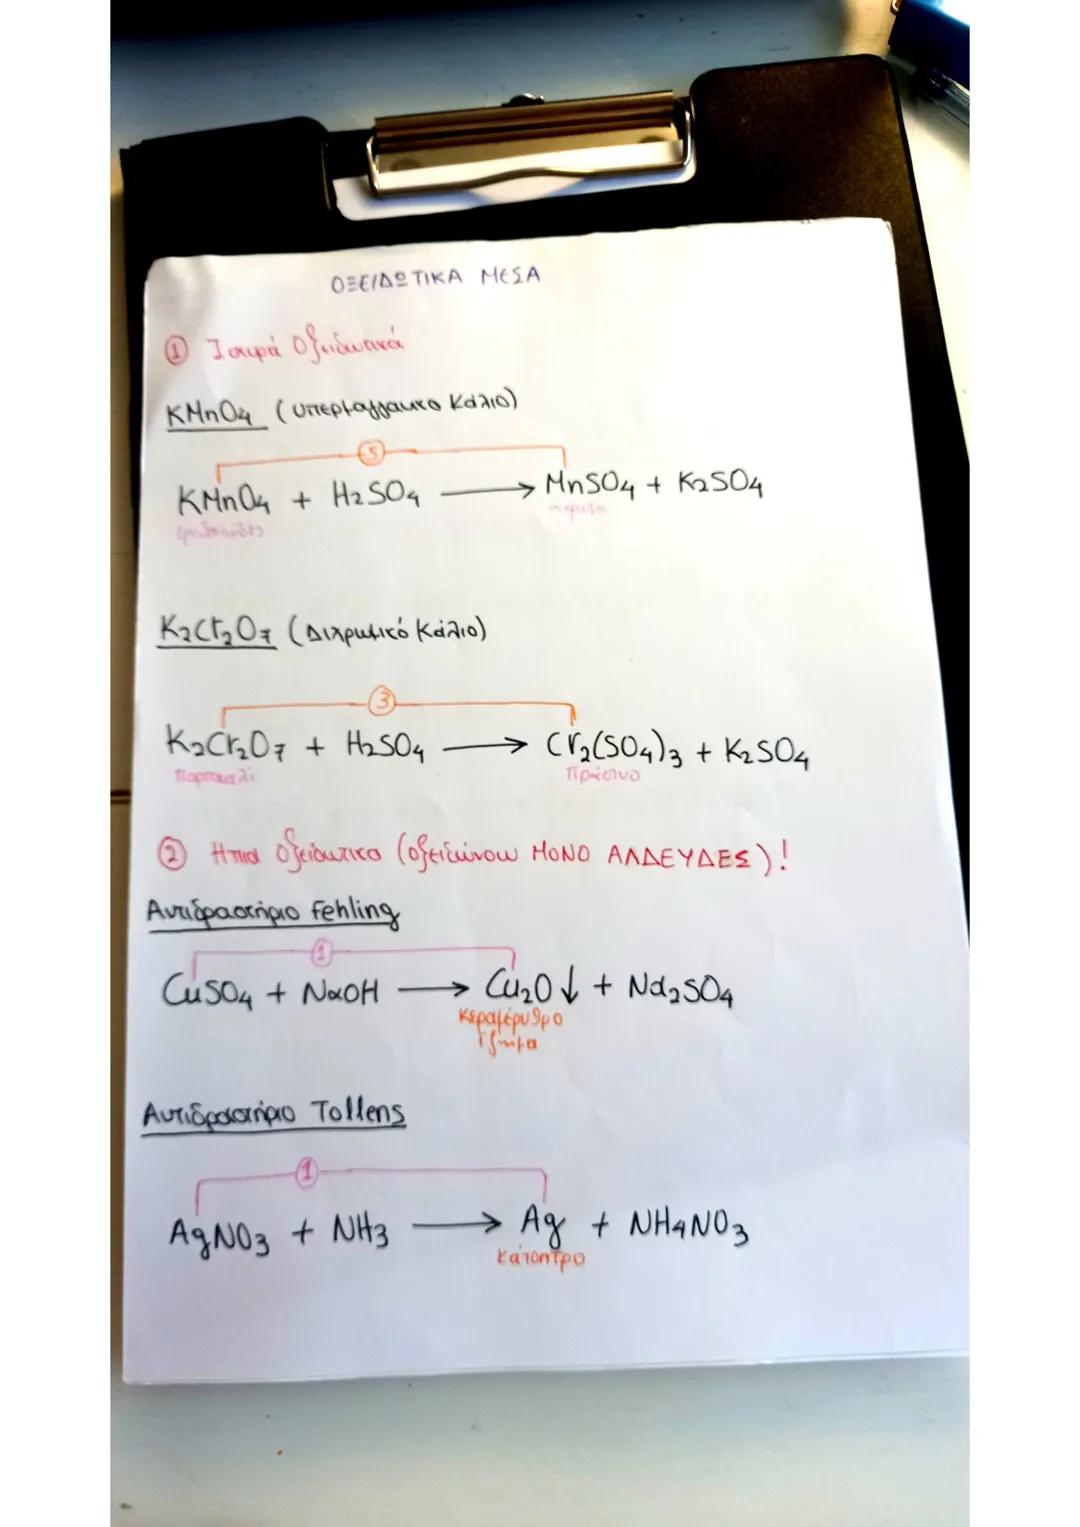 ΟΞΕΙΔΩΤΙΚΑ ΜΕΣΑ
① Ισχυρά Οξειδωτικά
KMnO4 (υπερμαγγανικο Κάλιο)
5
KMnO4 + H2SO4 → MnSO4 + K2SO4
άχρωμο
K2Cr2O7 (Διχρωμικό Κάλιο)
3
K2Cr2O7 + H2SO4 → Cr2(SO4)3 + K2SO4
Πορτοκαλί Πράσινο
② Ηπια Οξειδωτικα (οξειδώνουν ΜΟΝΟ ΑΛΔΕΥΔΕΣ)!
Αντιδραστήριο Fehling
1
CuSO4 + NaOH → Cu2O↓ + Na2SO4
κεραμέρυθρο
ίζημα
Αντιδραστήριο Tollens
1
AgNO3 + NH3 → Ag + NH4NO3
κάτοπτρο